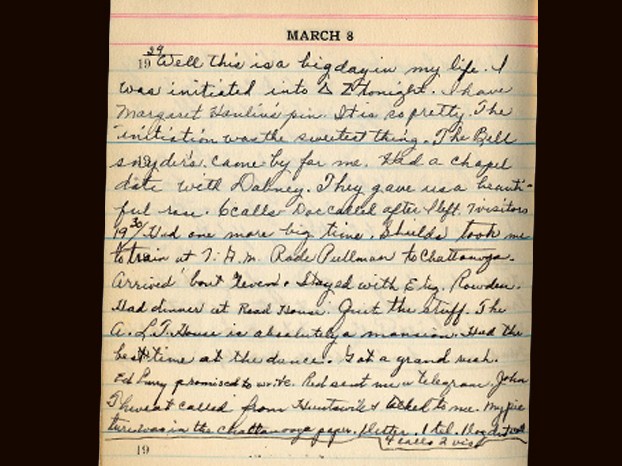 MARCH 8
1929 Well this is a big day in my life. I
was initiated into Δ Z tonight. I have
Margaret Hanlin's pin. It is so pretty. The
initiation was the sweetest thing. The Bell
Snyder's came by for me. Had a chapel
date with Dabney. They gave us a beauti-
ful rose. 6 calls Doc called after I left. 7 visitors
1930 Had one more big time. Shields took me
to train at 7. A. M. Rode Pullman to Chattanooga.
Arrived 'bout 'leven. Stayed with Eliz. Rowden.
Had dinner at Road House. Just the stuff. The
A. L. T. House is absolutely a mansion. Had the
best time at the dance. Got a grand rush.
Ed promised to write. Red sent me a telegram. John
called from Huntsville & talked to me. My pic
ture was in the Chattanooga paper. 1 letter. 1 tel.
4 calls 2 visit
19